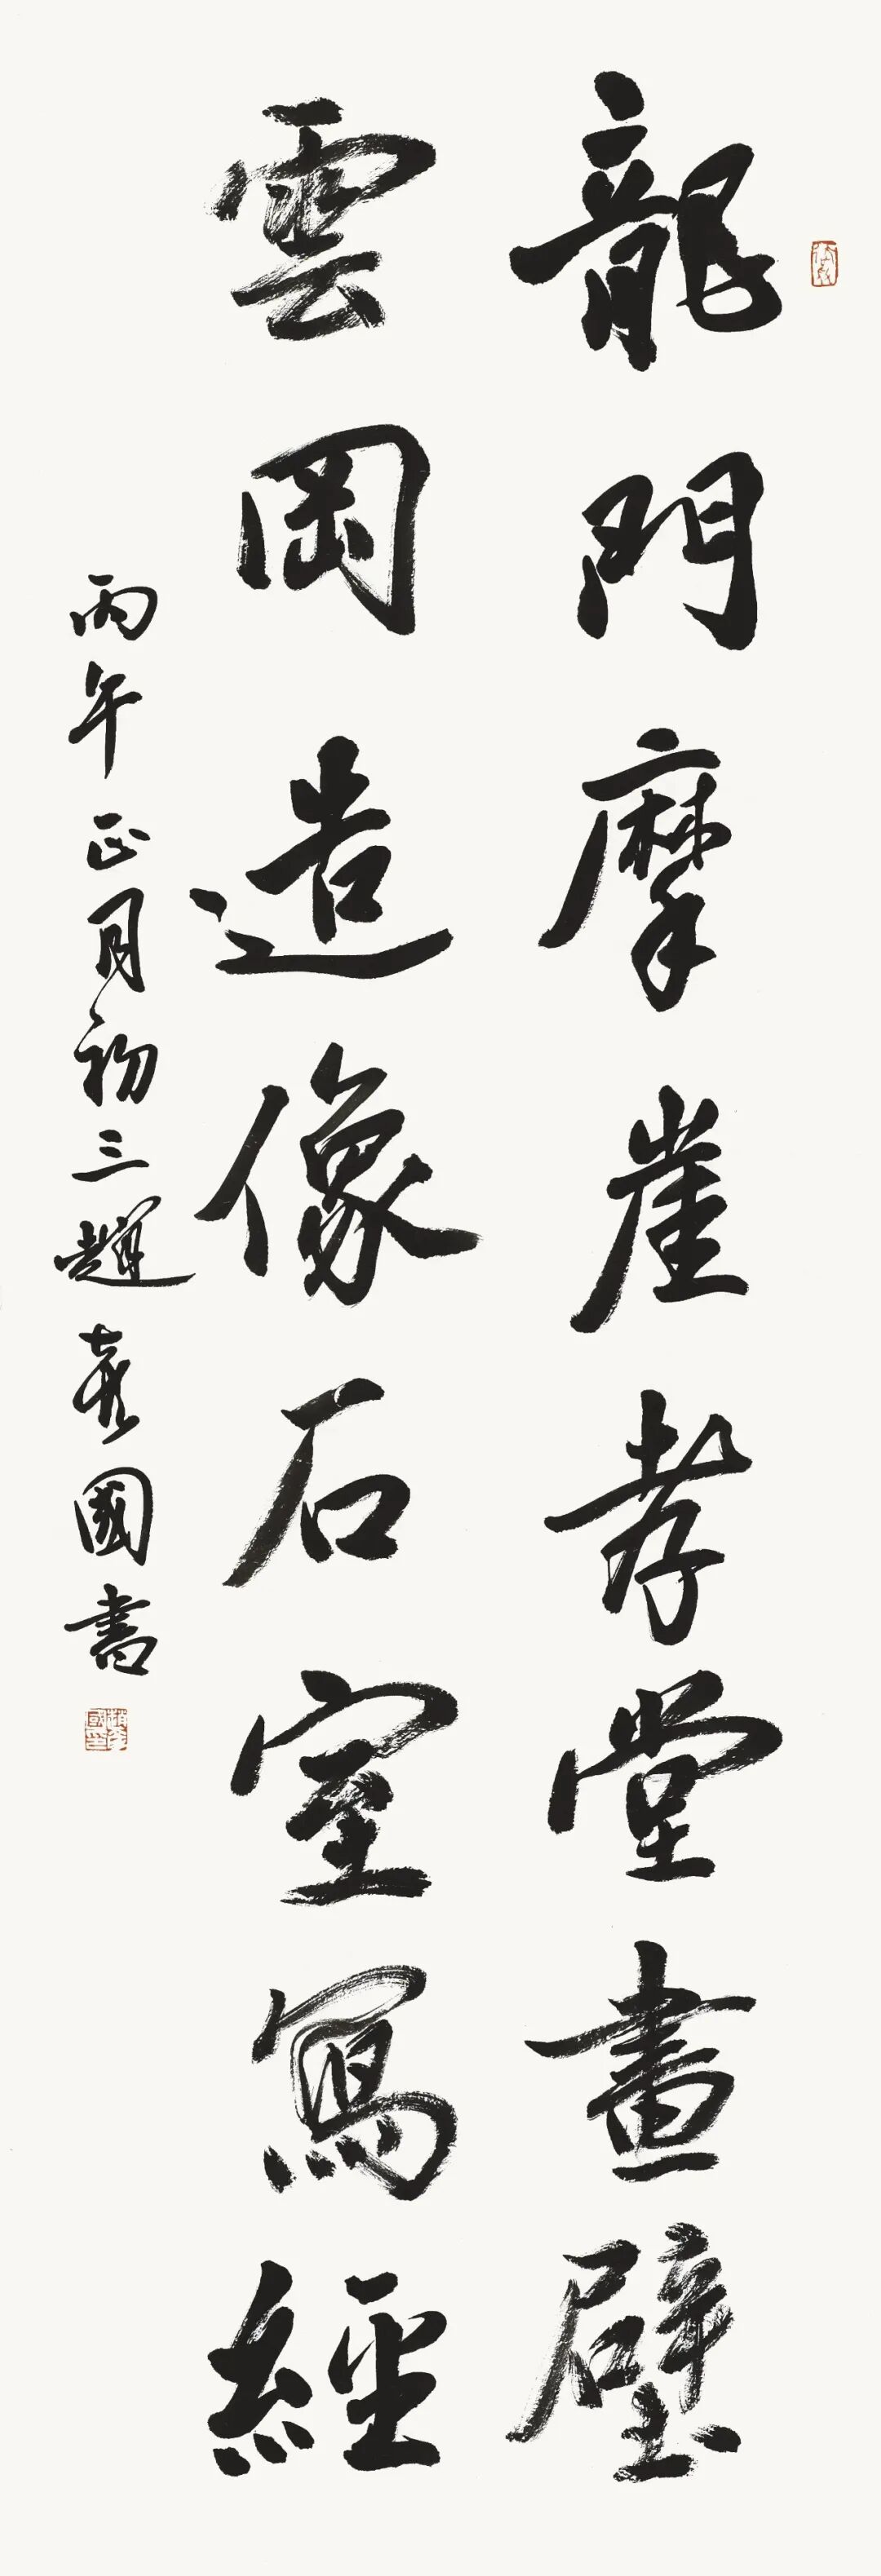 龍門摩崖孝堂畫壁
雲岡造像石室寫經
丙午正月初三趙
國書